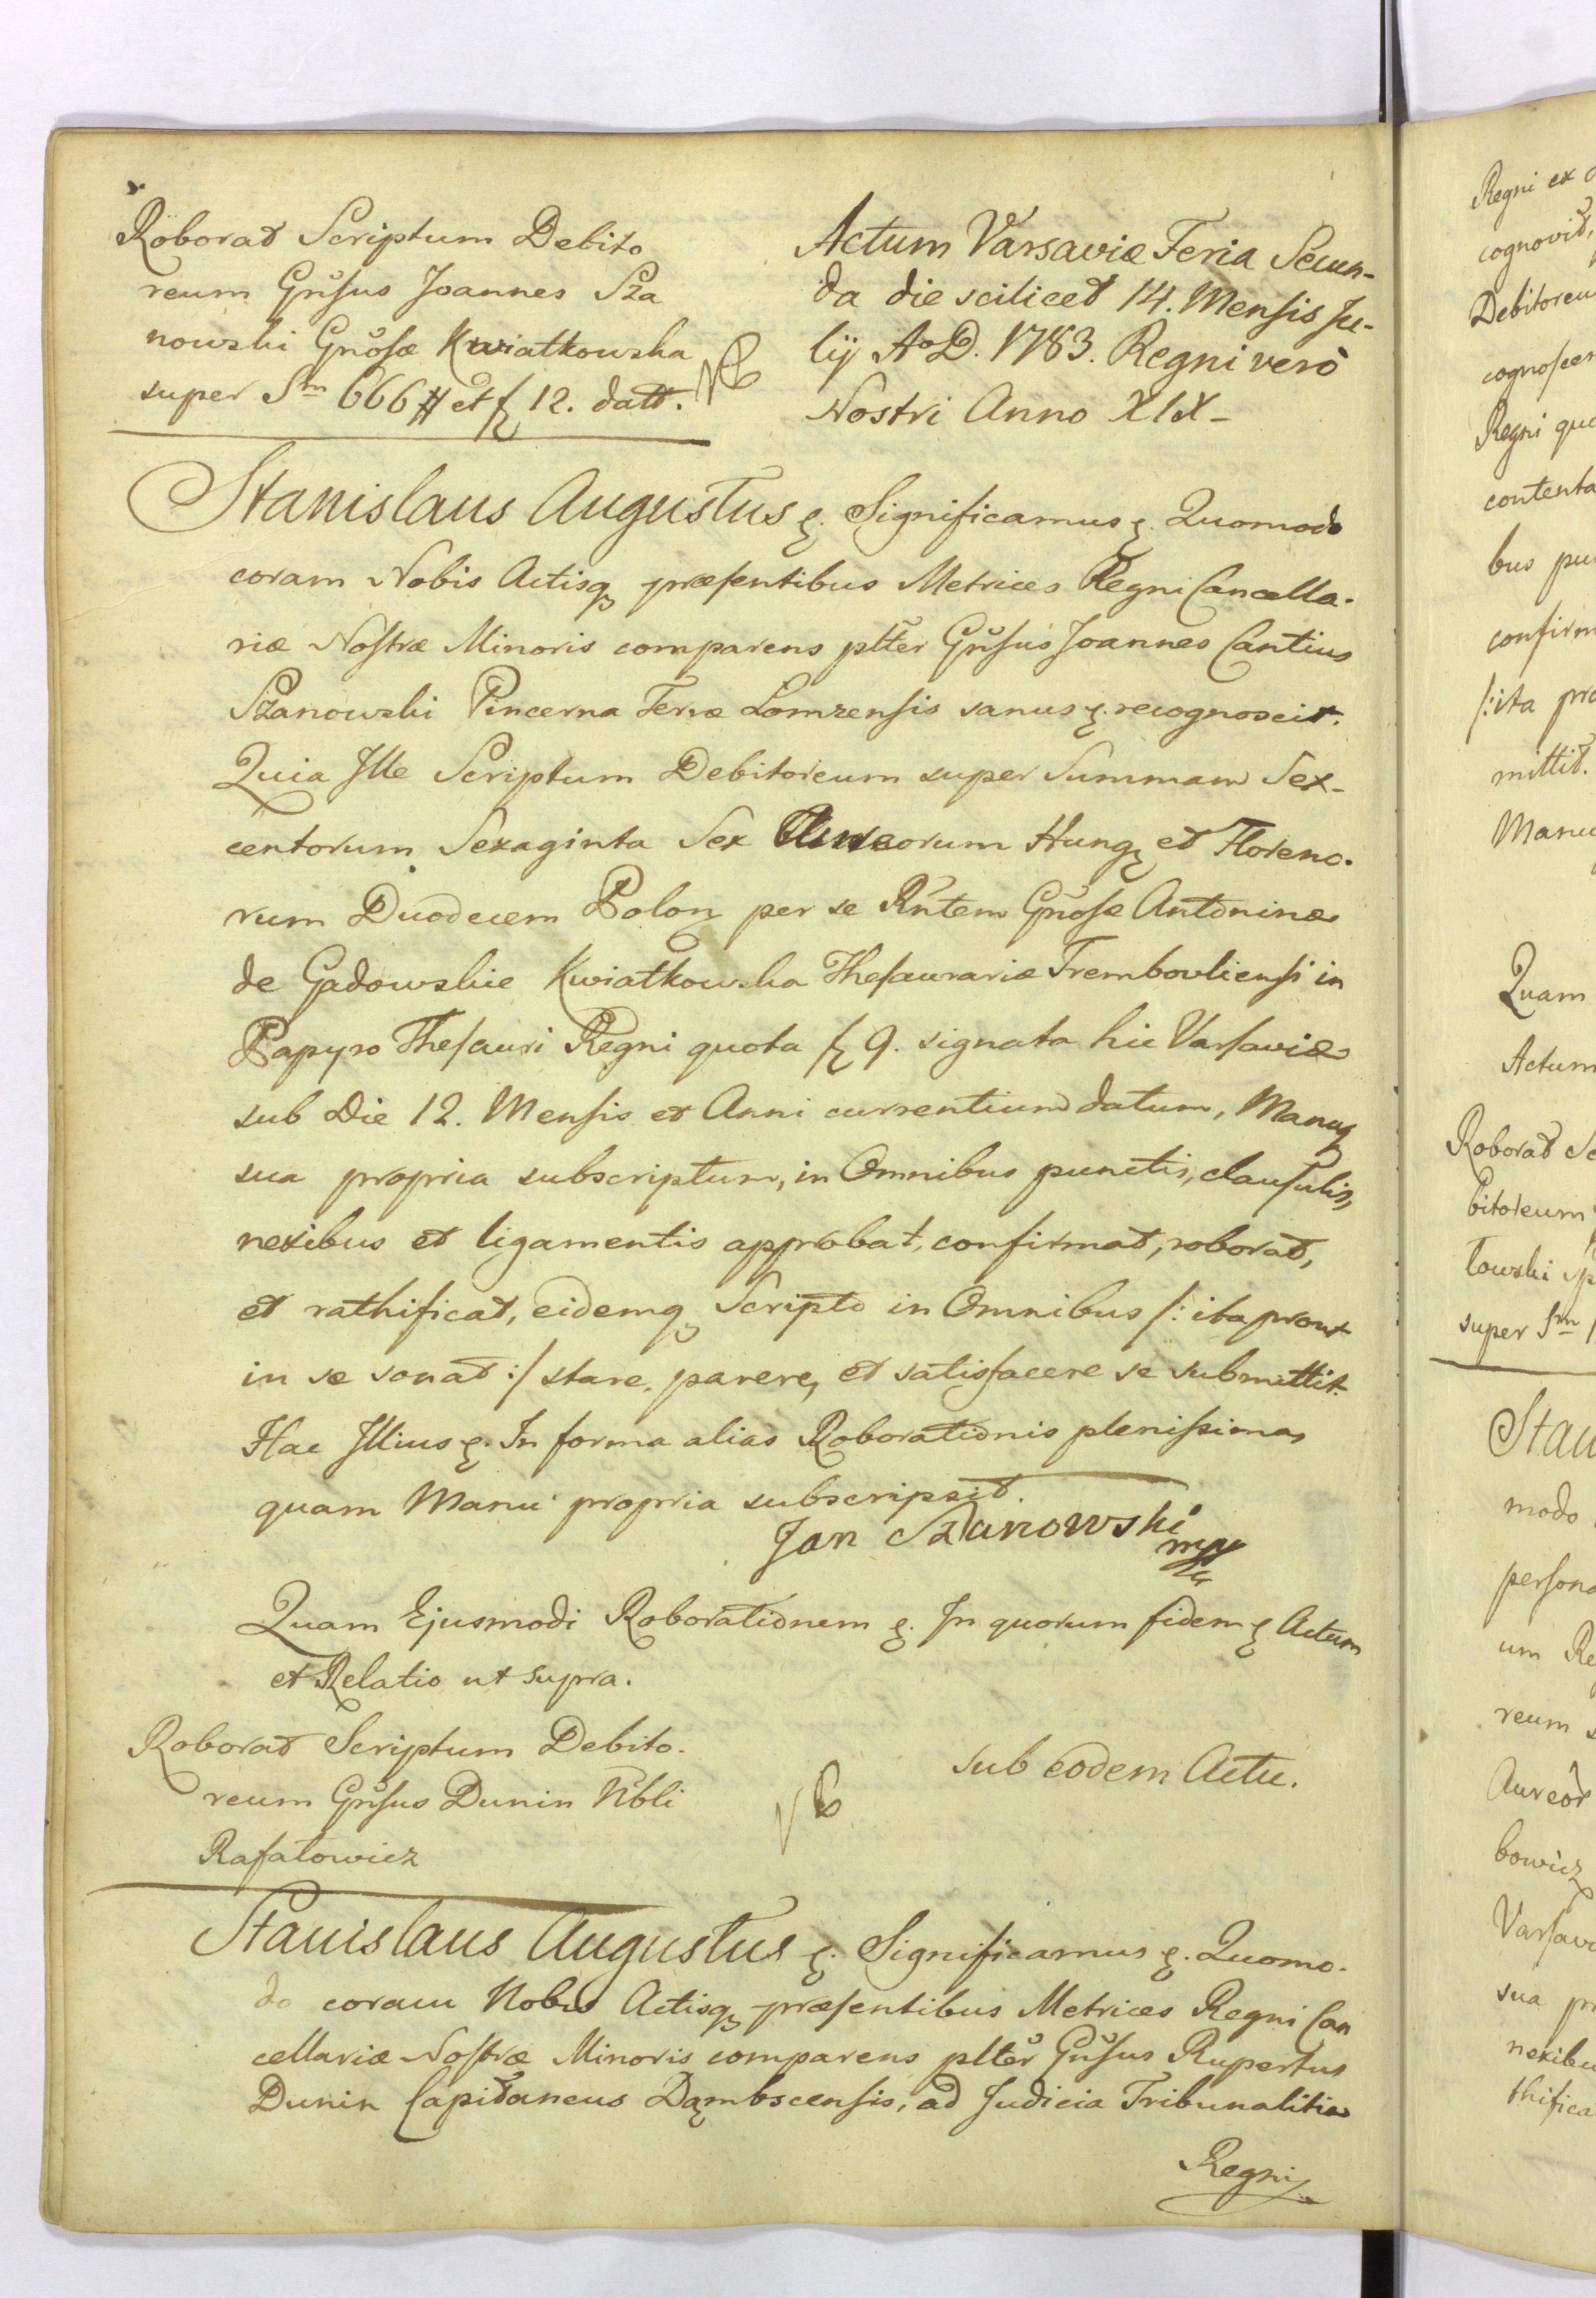 Roborat Scriptum Debito
reum Gnsus Joannes Sza
nowski Gnosæ Kwiatkowska
super Sm 666 # et f 12. datt. NB
Actum Varsaviæ Feria Secun-
da die scilicet 14. Mensis Ju-
lij Ao D. 1783. Regni verò
Nostri Anno XIX-
Stanislaus Augustus ę. Significamus ę. Quomodo
coram Nobis Actisqȝ præsentibus Metrices Regni Cancella-
riæ Nostræ Minoris comparens plter Gnsus Joannes Cantius
Szanowski Pincerna Terræ Lomzensis sanus ę. recognoscit.
Quia Ille Scriptum Debitoreum super Summam Sex-
centorum Sexaginta Sex Aureorum Hung et Floreno-
rum Duodecem Polon per se Rntem Gnosæ Antoninæ
de Gadowskie Kwiatkowska Thesaurariæ Trembovliensi in
Papyro Thesauri Regni quota f 9. signata hic Varsaviæ
sub Die 12. Mensis et Anni currentium datum, Manuqȝ
sua propria subscriptum, in Omnibus punctis, clausulis,
nexibus et ligamentis approbat, confirmat, roborat,
et rathificat, eidemqȝ Scripto in Omnibus /: ita prout
in se sonat :/ stare, parere, et satisfacere se submittit.
Hac Illius ę. In forma alias Roborationis plenissima
quam Manu propria subscripsit.
Jan Szanowski
mpp
Quam Ejusmodi Roborationem ę. In quorum fidem ę Actum
et Relatio ut supra.
Roborat Scriptum Debito-
reum Gnsus Dunin Nbli
Rafałowicz
NB
sub eodem Actu.
Stanislaus Augustus ę. Significamus ę. Quomo-
do coram Nobis Actisqȝ præsentibus Metrices Regni Can
cellariæ Nostræ Minoris comparens plter Gnsus Rupertus
Dunin Capitaneus Dąmbscensis, ad Judicia Tribunalitia
Regni
Regni ex
cognovit,
Debitoreu
cognoscen
Regni quo
contenta
bus pun
confirm
/: ita pro
mittit.
Manu
Quam
Actum
Roborat Sc
bitoreum
towski
super Sm
Stan
modo
persona
um Re
reum
Aureor
bowicz
Varsav
sua pr
nexibu
thifica